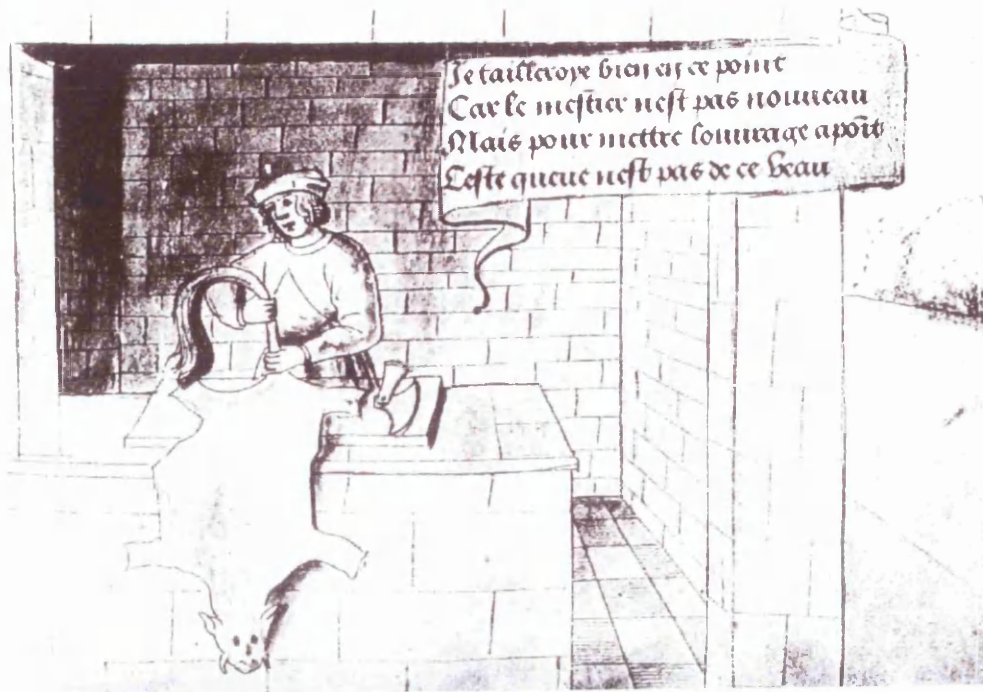 Je tailleroye bien en ce point
Car le mestier nest pas nouueau
Mais pour mettre louurage apoĩt
Ceste queue nest pas de ce veau